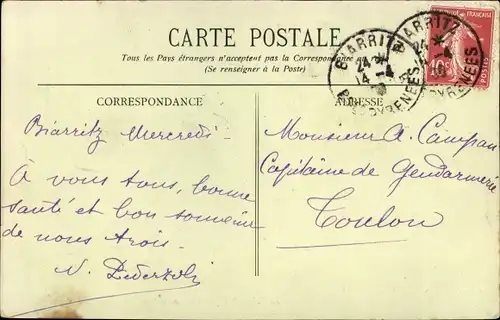 CARTE POSTALE
Tous les Pays étrangers n'acceptent pas la Correspondance au
(Se renseigner à la Poste)
CORRESPONDANCE
ADRESSE
BIARRITZ
BIARRITZ
PYRENEES
10c
Biarritz Mercredi -
À vous tous, bonne
santé et bon souvenir
de nous trois.
Monsieur A. Campan
Capitaine de Gendarmerie
Toulon